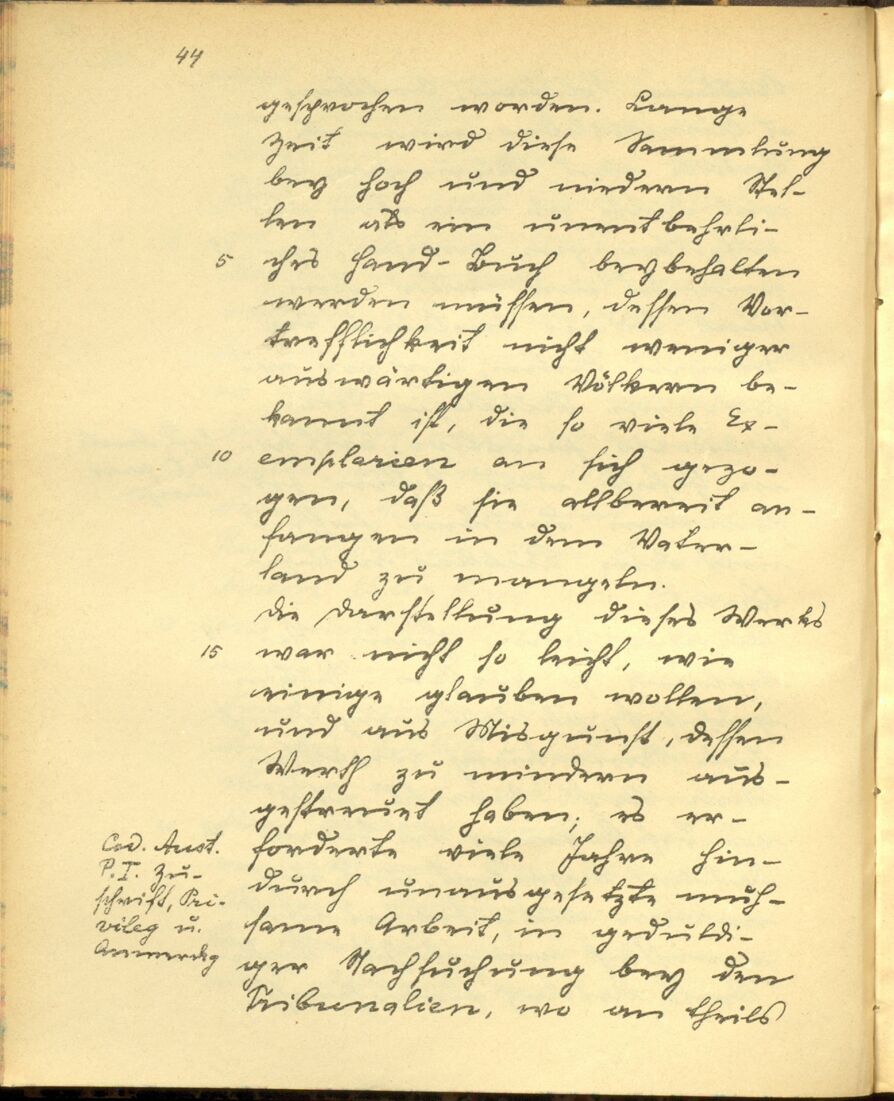 44
gesprochen worden. Lange
Zeit wird diese Sammlung
bey hoch und niedern Stel-
len als ein unentbehrli-
5 ches Hand-Buch beybehalten
werden müssen, dessen Vor-
trefflichkeit nicht weniger
auswärtigen Völkern be-
kannt ist, die so viele Ex-
10 emplarien an sich gezo-
gen, daß sie allbereit an-
fangen in dem Vater-
land zu mangeln.
Die Darstellung dieses Werks
15 war nicht so leicht, wie
einige glauben wollen,
und aus Misgunst, dessen
Werth zu mindern aus-
gestreuet haben; es er-
forderte viele Jahre hin-
durch unausgesetzte müh-
same Arbeit, in geduldi-
ger Nachsuchung bey den
Tribunalien, wo an theils
Cod. Aust.
P. I. Zu-
schrift, Pri-
vileg u.